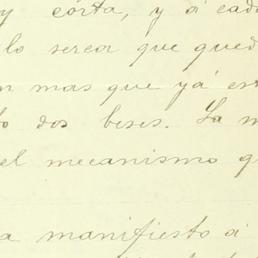 y corta, y á cad
lo sercor que qued
mas que yá es
dos beses. La m
el mecanismo q
a manifiesto á